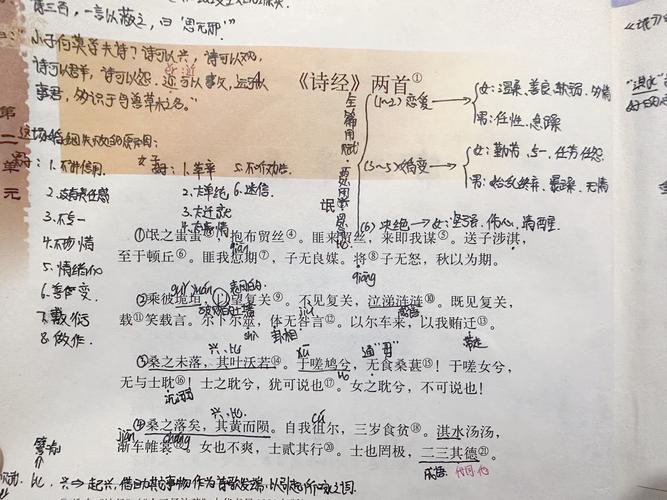 诗三百，一言以蔽之，曰"思无邪"。
小子何莫学夫诗？诗可以兴，诗可以观，
诗可以群，诗可以怨，迩可以事父，远可以
事君，多识于鸟兽草木之名。
《诗经》两首①
全篇用赋
(1~2) 恋爱
女：温柔、善良、软弱、多情
男：任性、急躁
(3~5) 婚变
女：勤劳、专一、任劳任怨
男：始乱终弃、暴躁、无情
(6) 决绝
女：坚强、伤心、清醒
第二单元
男：1.不讲信用
2.没有责任感
3.不专一
4.不动情
5.情绪化
6.善变
7.敷衍
8.做作
女：1.草率
2.太单纯
3.太恋
5.不
6.迷信
氓
①氓之蚩蚩②，抱布贸丝④。匪来贸丝，来即我谋⑤。送子涉淇，
至于顿丘⑥。匪我愆期⑦，子无良媒。将⑧子无怒，秋以为期。
qiān
qiāng
guǐ yuán
②乘彼垝垣，以望复关⑨。不见复关，泣涕涟涟⑩。既见复关，
载⑪笑载言。尔卜尔筮，体无咎言⑫。以尔车来，以我贿迁⑬。
jiù
shì 卦相
兴、比
xū
通"毋"
③桑之未落，其叶沃若⑭。于嗟鸠兮，无食桑葚⑮！于嗟女兮，
无与士耽⑯！士之耽兮，犹可说也⑰。女之耽兮，不可说也！
沉溺
兴、比
cú
④桑之落矣，其黄而陨。自我徂尔，三岁食贫⑱。淇水汤汤，
jiān
shāng
渐车帷裳⑲。女也不爽，士贰其行⑳。士也罔极，二三其德㉑。
成语：
兴⇒起兴，借助其它事物作为诗歌发端，以引起所咏之词。